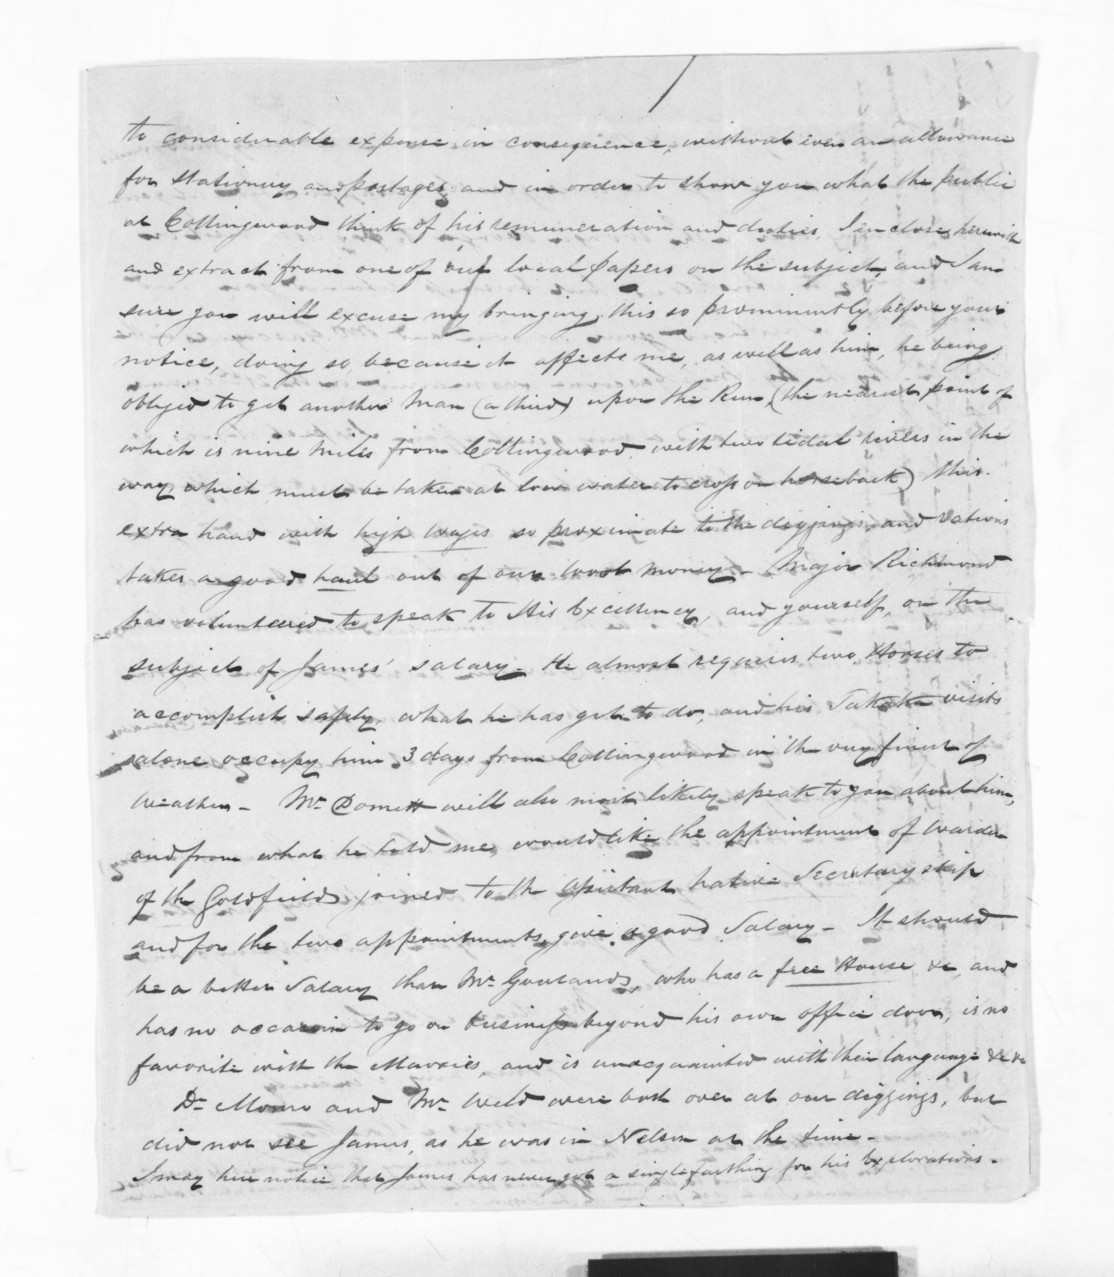 to considerable expense in consequence, without even an allowance
for stationery and postages, and in order to show you what the public
at Collingwood think of his remuneration and duties, I enclose herewith
and extract from one of our local papers on the subject, and I am
sure you will excuse my bringing this so prominently before your
notice, doing so, because it affects me, as well as him, he being
obliged to get another man (a third) upon the Run, (the nearest point of
which is nine miles from Collingwood with two tidal rivers in the
way, which must be taken at low water to cross on horseback) this
extra hand with high wages so proximate to the diggings, and rations
takes a good haul out of our wool money - Major Richmond
has volunteered to speak to His Excellency, and yourself, on the
subject of James' salary. He almost requires two Horses to
accomplish safely, what he has got to do, and his Takaka visits
alone occupy him 3 days from Collingwood in the very finest of
weather - Mr. Domett will also most likely speak to you about him,
and from what he told me, would like the appointment of Warden
of the Goldfields, joined to the Assistant native Secretary ship
and for the two appointments, give a good Salary - It should
be a better Salary than Mr. Gouland's, who has a free House &c, and
has no occasion to go on business beyond his own office door, is no
favorite with the Maories, and is unacquainted with their language &c &c
Dr. Monro and Mr. Weld were both over at our diggings, but
did not see James, as he was in Nelson at the time -
I may here notice that James has never got a single farthing for his Explorations -